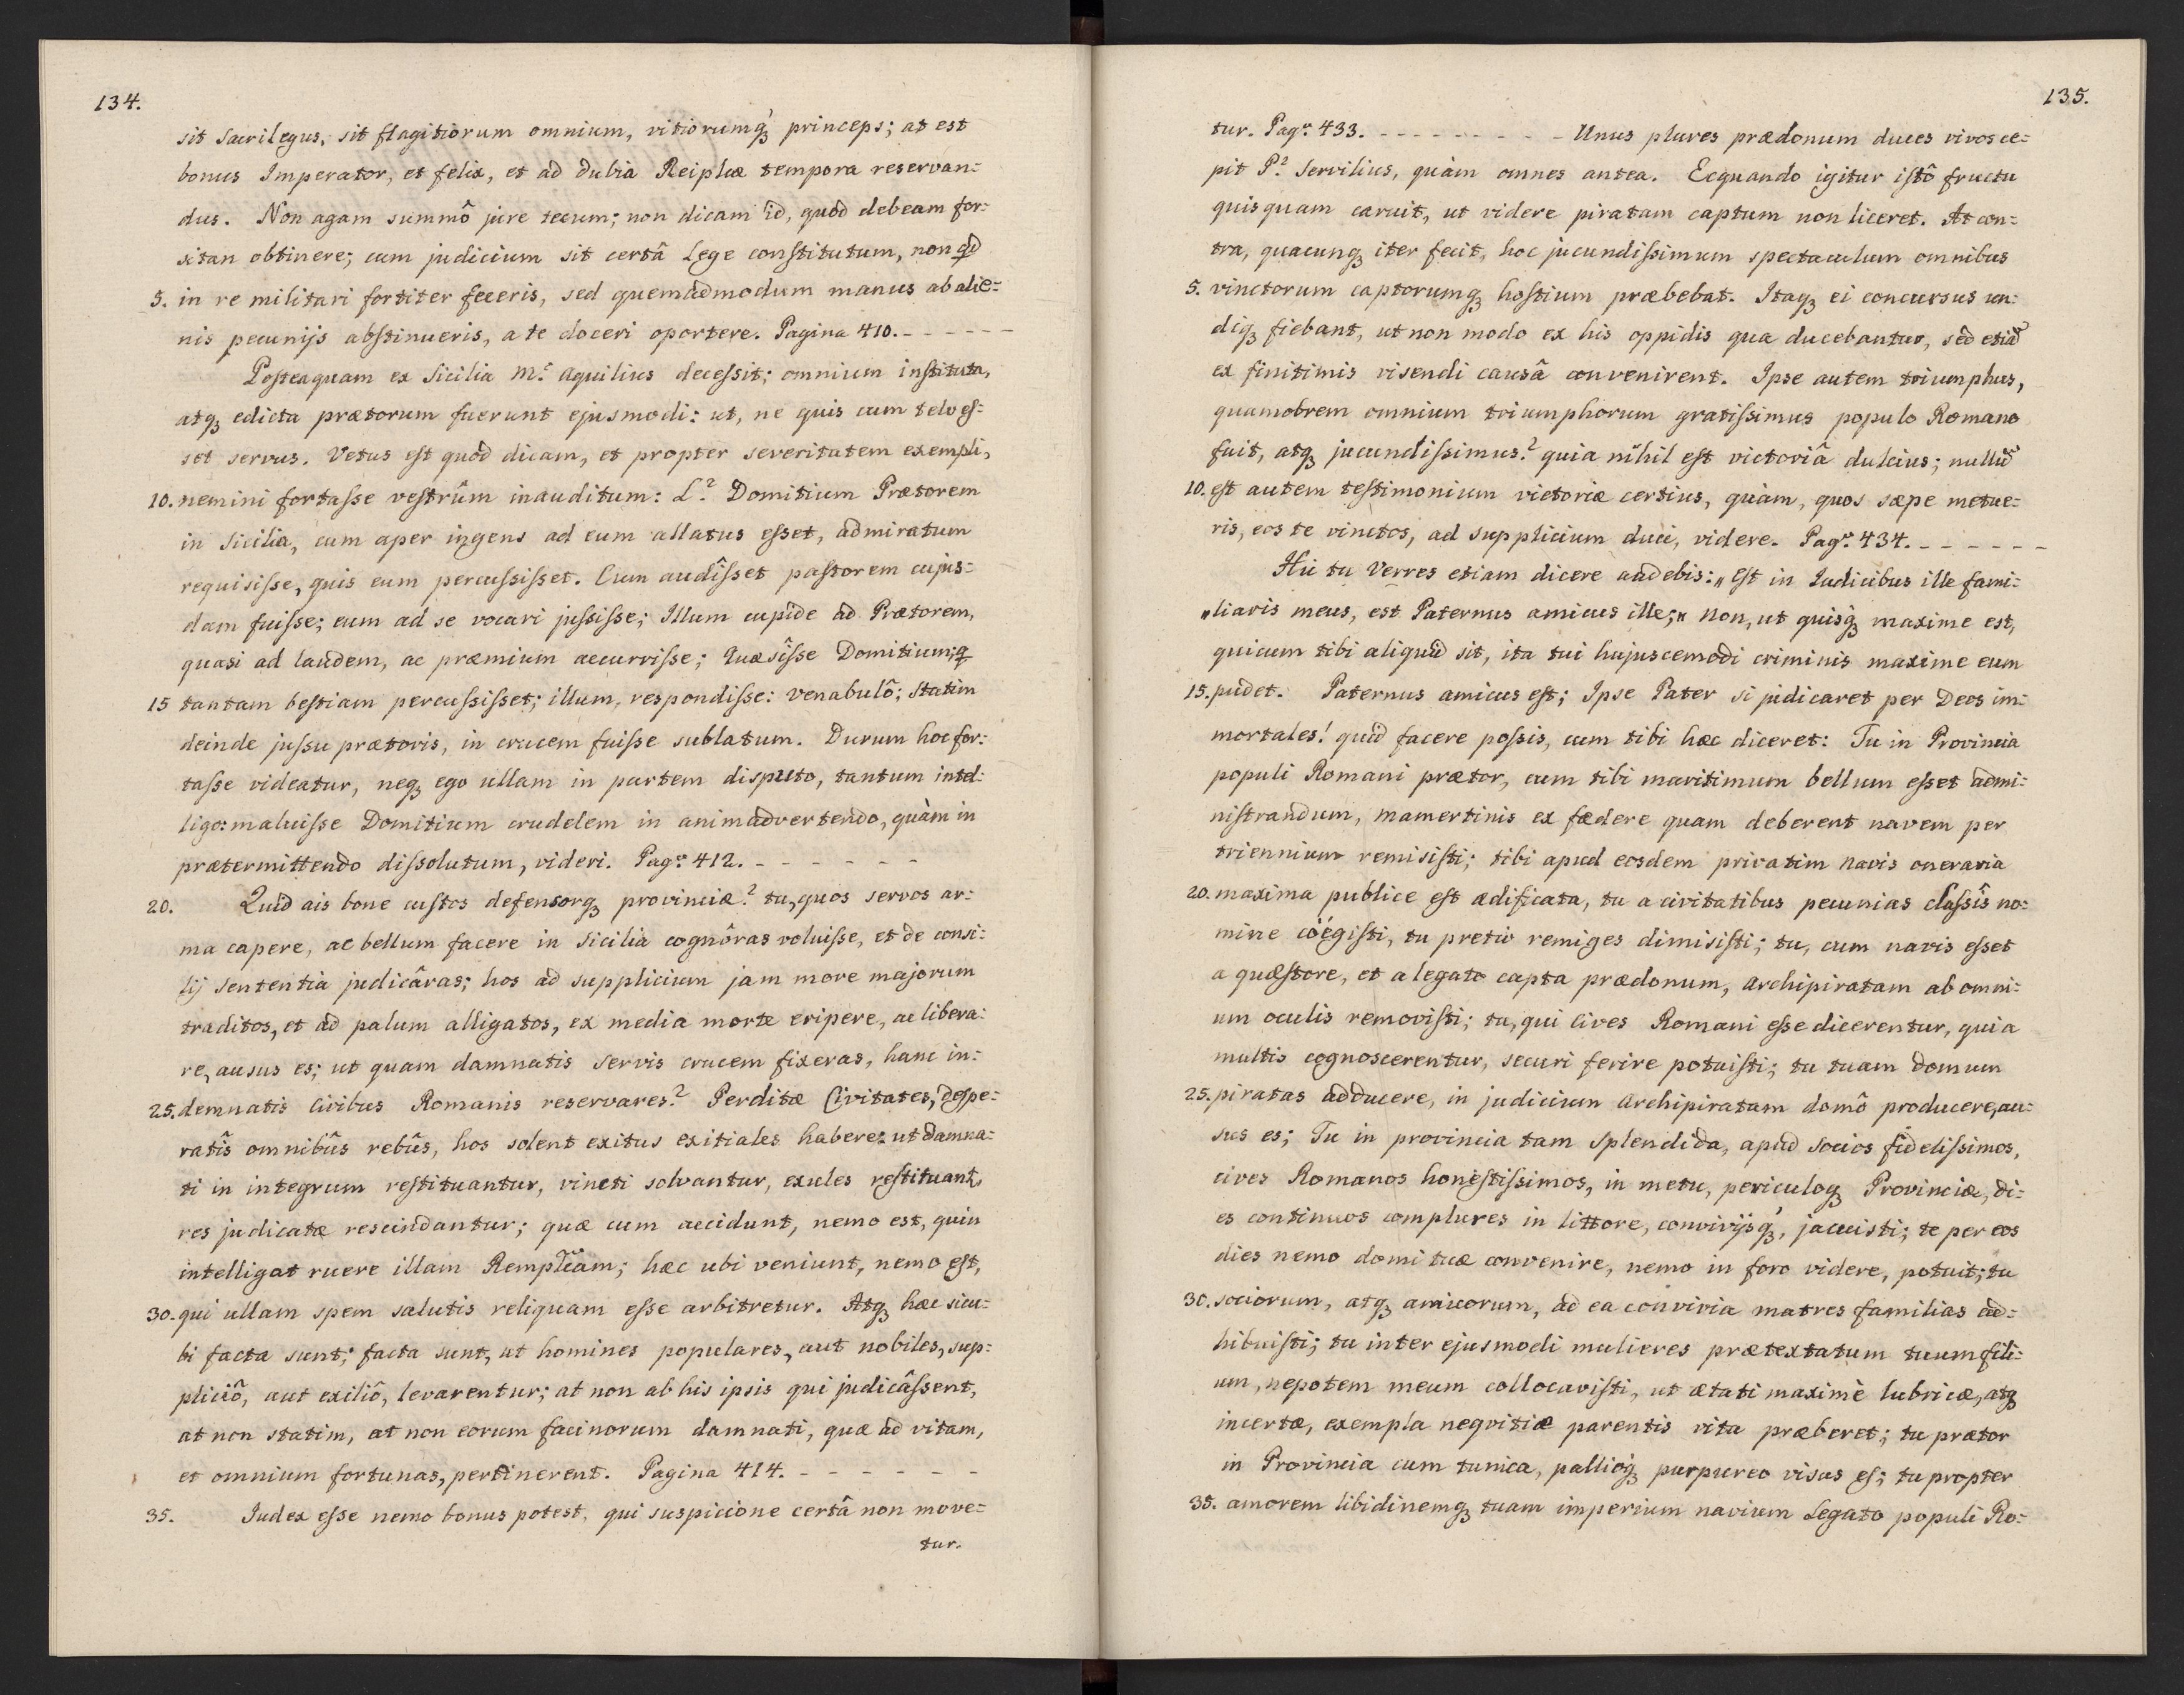 134.
sit Sacrilegus, sit flagitiorum omnium, vitiorumq́ꝫ princeps; at est
bonus Imperator, et felix, et ad dubia Reiplicæ tempora reservan=
dus. Non agam summô jure tecum; non dicam id, quod debeam for=
sitan obtinere; cum judicium sit certâ Lege constitutum, non qd
5. in re militari fortiter feceris, sed quemadmodum manus ab alie=
nis pecunijs abstinueris, a te doceri oportere. Pagina 410. - - - - - -
Posteaquam ex Sicilia M.ꝰ Aquilius decessit; omnium instituta,
atqꝫ edicta prætorum fuerunt ejusmodi: ut, ne quis cum telo es=
set servus. Vetus est quod dicam, et propter severitatem exempli,
10. nemini fortasse vestrûm inauditum: L.ꝰ Domitium Prætorem
in Sicilia, cum aper ingens ad eum allatus esset, admiratum
requisisse, quis eum percussisset. Cum audîsset pastorem cujus=
dam fuisse; eum ad se vocari jussisse; Illum cupide ad Prætorem,
quasi ad laudem, ac præmium accurrisse; Quæsîsse Domitium; q̃
15 tantam bestiam percussisset; illum, respondisse: Venabulô; Statim
deinde jussu prætoris, in crucem fuisse sublatum. Durum hoc for=
tasse videatur, neqꝫ ego ullam in partem disputo, tantum intel=
ligo: maluisse Domitium crudelem in animadvertendo, quàm in
prætermittendo dissolutum, videri. Pag.ᵃ 412. - - - - - - -
20. Quid ais bone custos defensorqꝫ provinciæ? tu, quos servos ar=
ma capere, ac bellum facere in Sicilia cognôras voluisse, et de consi=
lij Sententia judicâras; hos ad supplicium jam more majorum
traditos, et ad palum alligatos, ex media morte eripere, ac libera=
re, ausus es; ut quam damnatis Servis crucem fixeras, hanc in=
25. demnatis Civibus Romanis reservares? Perditæ Civitates, despe=
ratîs omnibûs rebûs, hos solent exitus exitiales habere: ut damna=
ti in integrum restituantur, vincti solvantur, exules restituantr,
res judicatæ rescindantur; quæ cum accidunt, nemo est, quin
intelligat ruere illam Remplicam; hæc ubi veniunt, nemo est,
30. qui ullam spem salutis reliquam esse arbitretur. Atqꝫ hæc sicu=
bi facta sunt; facta sunt, ut homines populares, aut nobiles, sup=
pliciô, aut exiliô, levarentur; at non ab his ipsis qui judicâssent,
at non statim, at non eorum facinorum damnati, quæ ad vitam,
et omnium fortunas, pertinerent. Pagina 414. - - - - - - -
35. Judex esse nemo bonus potest, qui suspicione certâ non move=
tur.
135.
tur. Pag.ᵃ 433. - - - - - - - - - - Unus plures prædonum duces vivos ce=
pit P.ꝰ Servilius, quàm omnes antea. Ecquando igitur istô fructu
quisquam caruit, ut videre piratam captum non liceret. At con=
tra, quacunqꝫ iter fecit, hoc jucundissimum spectaculum omnibus
5. vinctorum captorumqꝫ hostium præbebat. Itaqꝫ ei concursus un=
diqꝫ fiebant, ut non modo ex his oppidis qua ducebantur, sed etiã
ex finitimis visendi causâ convenirent. Ipse autem triumphus,
quamobrem omnium triumphorum gratissimus populo Romano
fuit, atqꝫ jucundissimus? quia nihil est victoriâ dulcius; nullũ
10. est autem testimonium victoriæ certius, quàm, quos sæpe metue=
ris, eos te vinctos, ad supplicium duci, videre. Pag.ᵃ 434. - - - - - -
Hic tu Verres etiam dicere audebis: „ Est in Iudicibus ille fami=
„liaris meus, est Paternus amicus ille;" Non, ut quisq́ꝫ maxime est,
quicum tibi aliquid sit, ita tui hujuscemodi criminis maxime eum
15. pudet. Paternus amicus est; Ipse Pater si judicaret per Deos im=
mortales! quid facere possis, cum tibi hæc diceret: Tu in Provincia
populi Romani prætor, cum tibi maritimum bellum esset admi=
nistrandum, Mamertinis ex fœdere quam deberent navem per
triennium remisisti; tibi apud eosdem privatim navis oneraria
20. maxima publice est ædificata, tu a civitatibus pecunias classîs no=
mine coëgisti, tu pretio remiges dimisisti; tu, cum navis esset
a quæstore, et a legato capta prædonum, Archipiratam ab omni=
um oculis removisti; tu, qui Cives Romani esse dicerentur, qui a
multis cognoscerentur, securi ferire potuisti; tu tuam domum
25. piratas adducere, in judicium Archipiratam domô producere, au=
sus es; Tu in provincia tam splendida, apud socios fidelissimos,
cives Romanos honestissimos, in metu, periculoqꝫ Provinciæ, di=
es continuos complures in littore, convivijsq́ꝫ, jacuisti; te per eos
dies nemo domi tuæ convenire, nemo in foro videre, potuit; tu
30. sociorum, atqꝫ amicorum, ad ea convivia matres familias ad=
hibuisti; tu inter ejusmodi mulieres prætextatum tuum fili=
um, nepotem meum collocavisti, ut ætati maximè lubricæ, atqꝫ
incertæ, exempla neqvitiæ parentis vita præberet; tu prætor
in Provincia cum tunica, pallioq́ꝫ purpureo visus es; tu propter
35. amorem libidinemqꝫ tuam imperium navium Legato populi Ro=